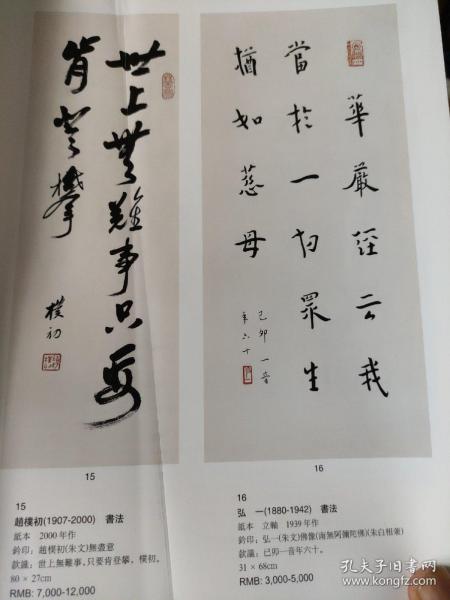 世上無難事只要
肯登攀
樸初
15
華嚴經云我
當於一切眾生
猶如慈母
己卯一音
年六十
16
15
趙樸初(1907-2000) 書法
紙本 2000年作
鈐印：趙樸初(朱文)無盡意
款識：世上無難事，只要肯登攀，樸初。
80 × 27cm
RMB: 7,000-12,000
16
弘 一(1880-1942) 書法
紙本 立軸 1939年作
鈐印：弘一(朱文)佛像(南無阿彌陀佛)(朱白相兼)
款識：己卯一音年六十。
31 × 68cm
RMB: 3,000-5,000
孔夫子旧书网